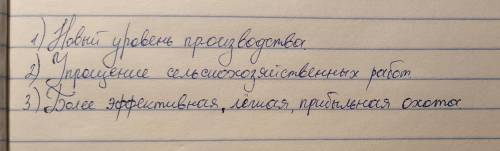 1) Новый уровень производства.
2) Упрощение сельскохозяйственных работ
3) Более эффективная, лёгкая, прибыльная охота